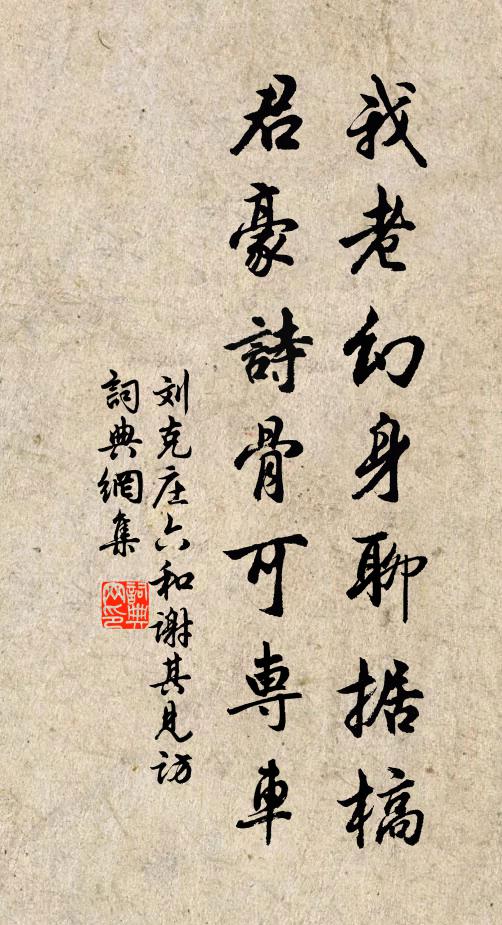 我老幻身聊据槁
君豪詩骨可専車
刘克庄六和谢其見访
詞典網集
詞典网印